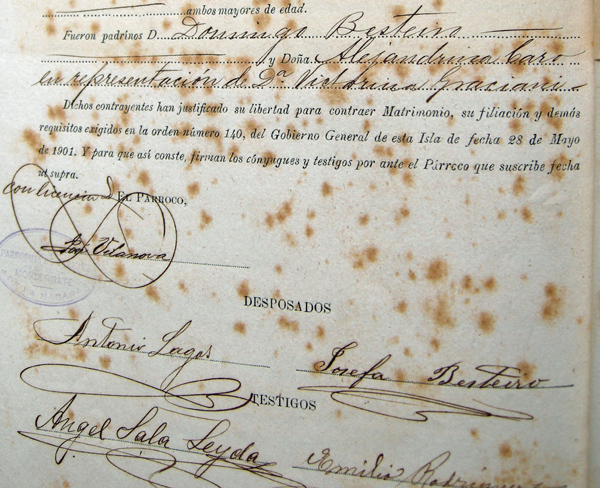 ambos mayores de edad.
Fueron padrinos D. Domingo Besteiro
y Doña. Alejandrina Caro
en representación de Dª Victorina Graciani
Dichos contrayentes han justificado su libertad para contraer Matrimonio, su filiación y demás
requisitos exigidos en la orden número 140, del Gobierno General de esta Isla de fecha 28 de Mayo
de 1901. Y para que así conste, firman los cónyugues y testigos por ante el Párroco que suscribe fecha
ut supra.
con licencia EL PARROCO,
Vilanova
MONSERRATE
DESPOSADOS
Antonio Lages
Josefa Besteiro
TESTIGOS
Angel Sala Leyda
Emilio Rodriguez